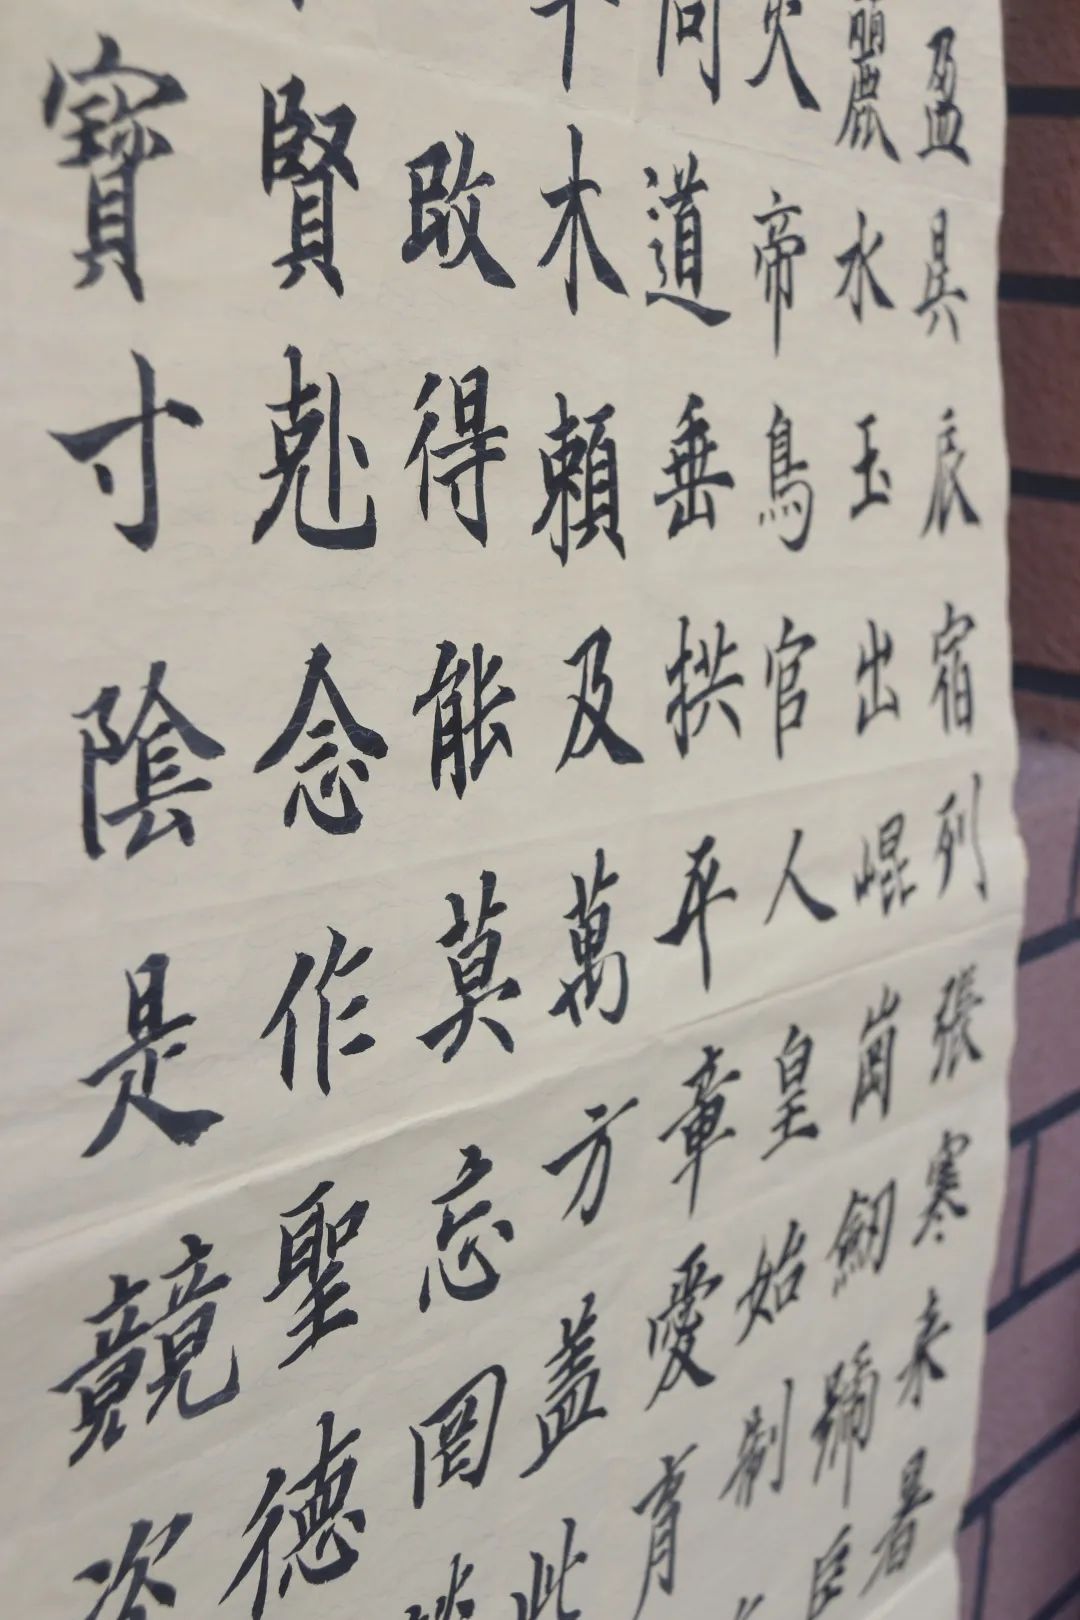 盈昃辰宿列張寒来暑
麗水玉出崐崗劒號臣
火帝鳥官人皇始制
問道垂拱平章愛育
木賴及萬方盖此
改得能莫忘罔談
賢剋念作聖德
寶寸陰是競資